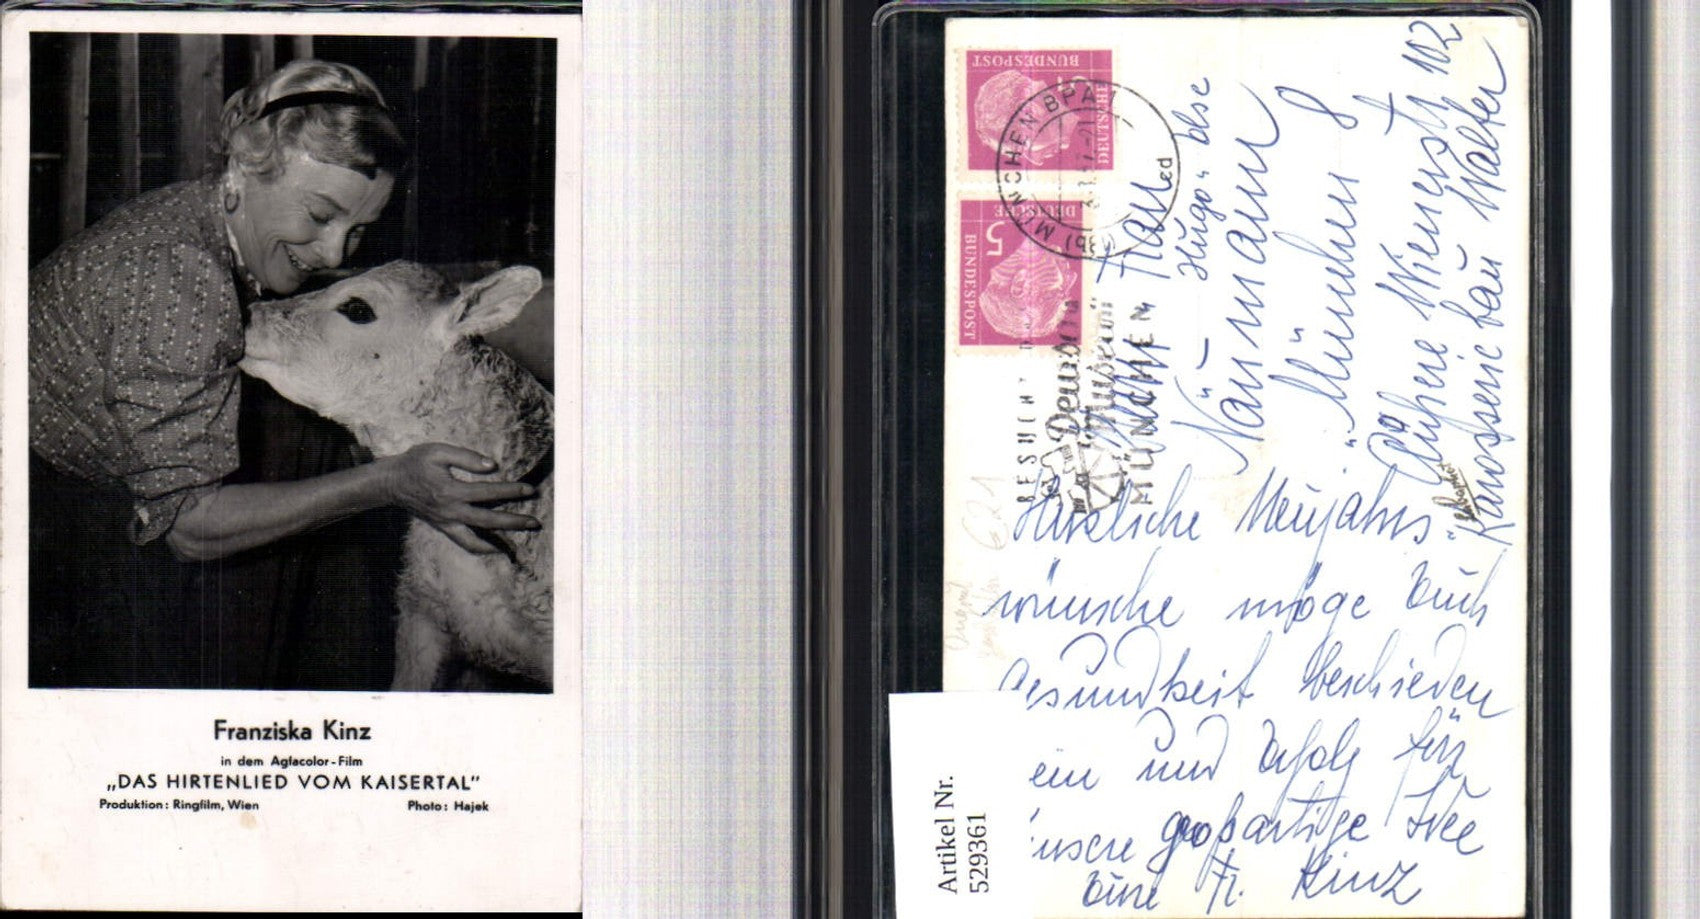 Franziska Kinz
in dem Agfacolor-Film
„DAS HIRTENLIED VOM KAISERTAL"
Produktion: Ringfilm, Wien
Photo: Hajek
DEUTSCHE
BUNDESPOST
5
DEUTSCHE
BUNDESPOST
(13b) MÜNCHEN BPA 1
BESUCHT DAS
Deutsche
Museum
MÜNCHEN
Frau
Hugo u. Ilse
Naumann
„München 8
Äußere Wienerstr. 102
Karosseriebau Walter
Herzliche Neujahrs-
wünsche möge Euch
Gesundheit beschieden
sein und Erfolg für
unsere großartige Idee
Eure Fr. Kinz
Artikel Nr.
529361